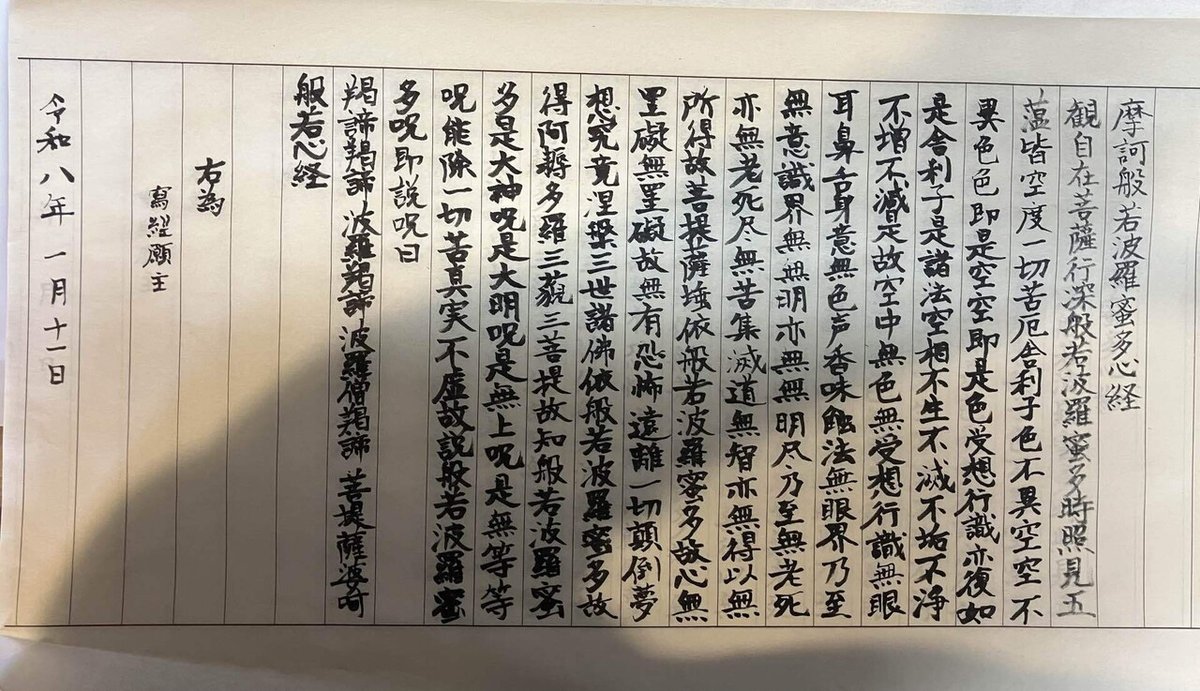 摩訶般若波羅蜜多心経
観自在菩薩行深般若波羅蜜多時照見五
蘊皆空度一切苦厄舎利子色不異空空不
異色色即是空空即是色受想行識亦復如
是舎利子是諸法空相不生不滅不垢不浄
不増不減是故空中無色無受想行識無眼
耳鼻舌身意無色声香味触法無眼界乃至
無意識界無無明亦無無明尽乃至無老死
亦無老死尽無苦集滅道無智亦無得以無
所得故菩提薩埵依般若波羅蜜多故心無
罣礙無罣礙故無有恐怖遠離一切顛倒夢
想究竟涅槃三世諸佛依般若波羅蜜多故
得阿耨多羅三藐三菩提故知般若波羅蜜
多是大神呪是大明呪是無上呪是無等等
呪能除一切苦真実不虚故説般若波羅蜜
多呪即説呪曰
羯諦羯諦 波羅羯諦 波羅僧羯諦 菩提薩婆訶
般若心経
右為
寫経願主
令和八年一月十一日